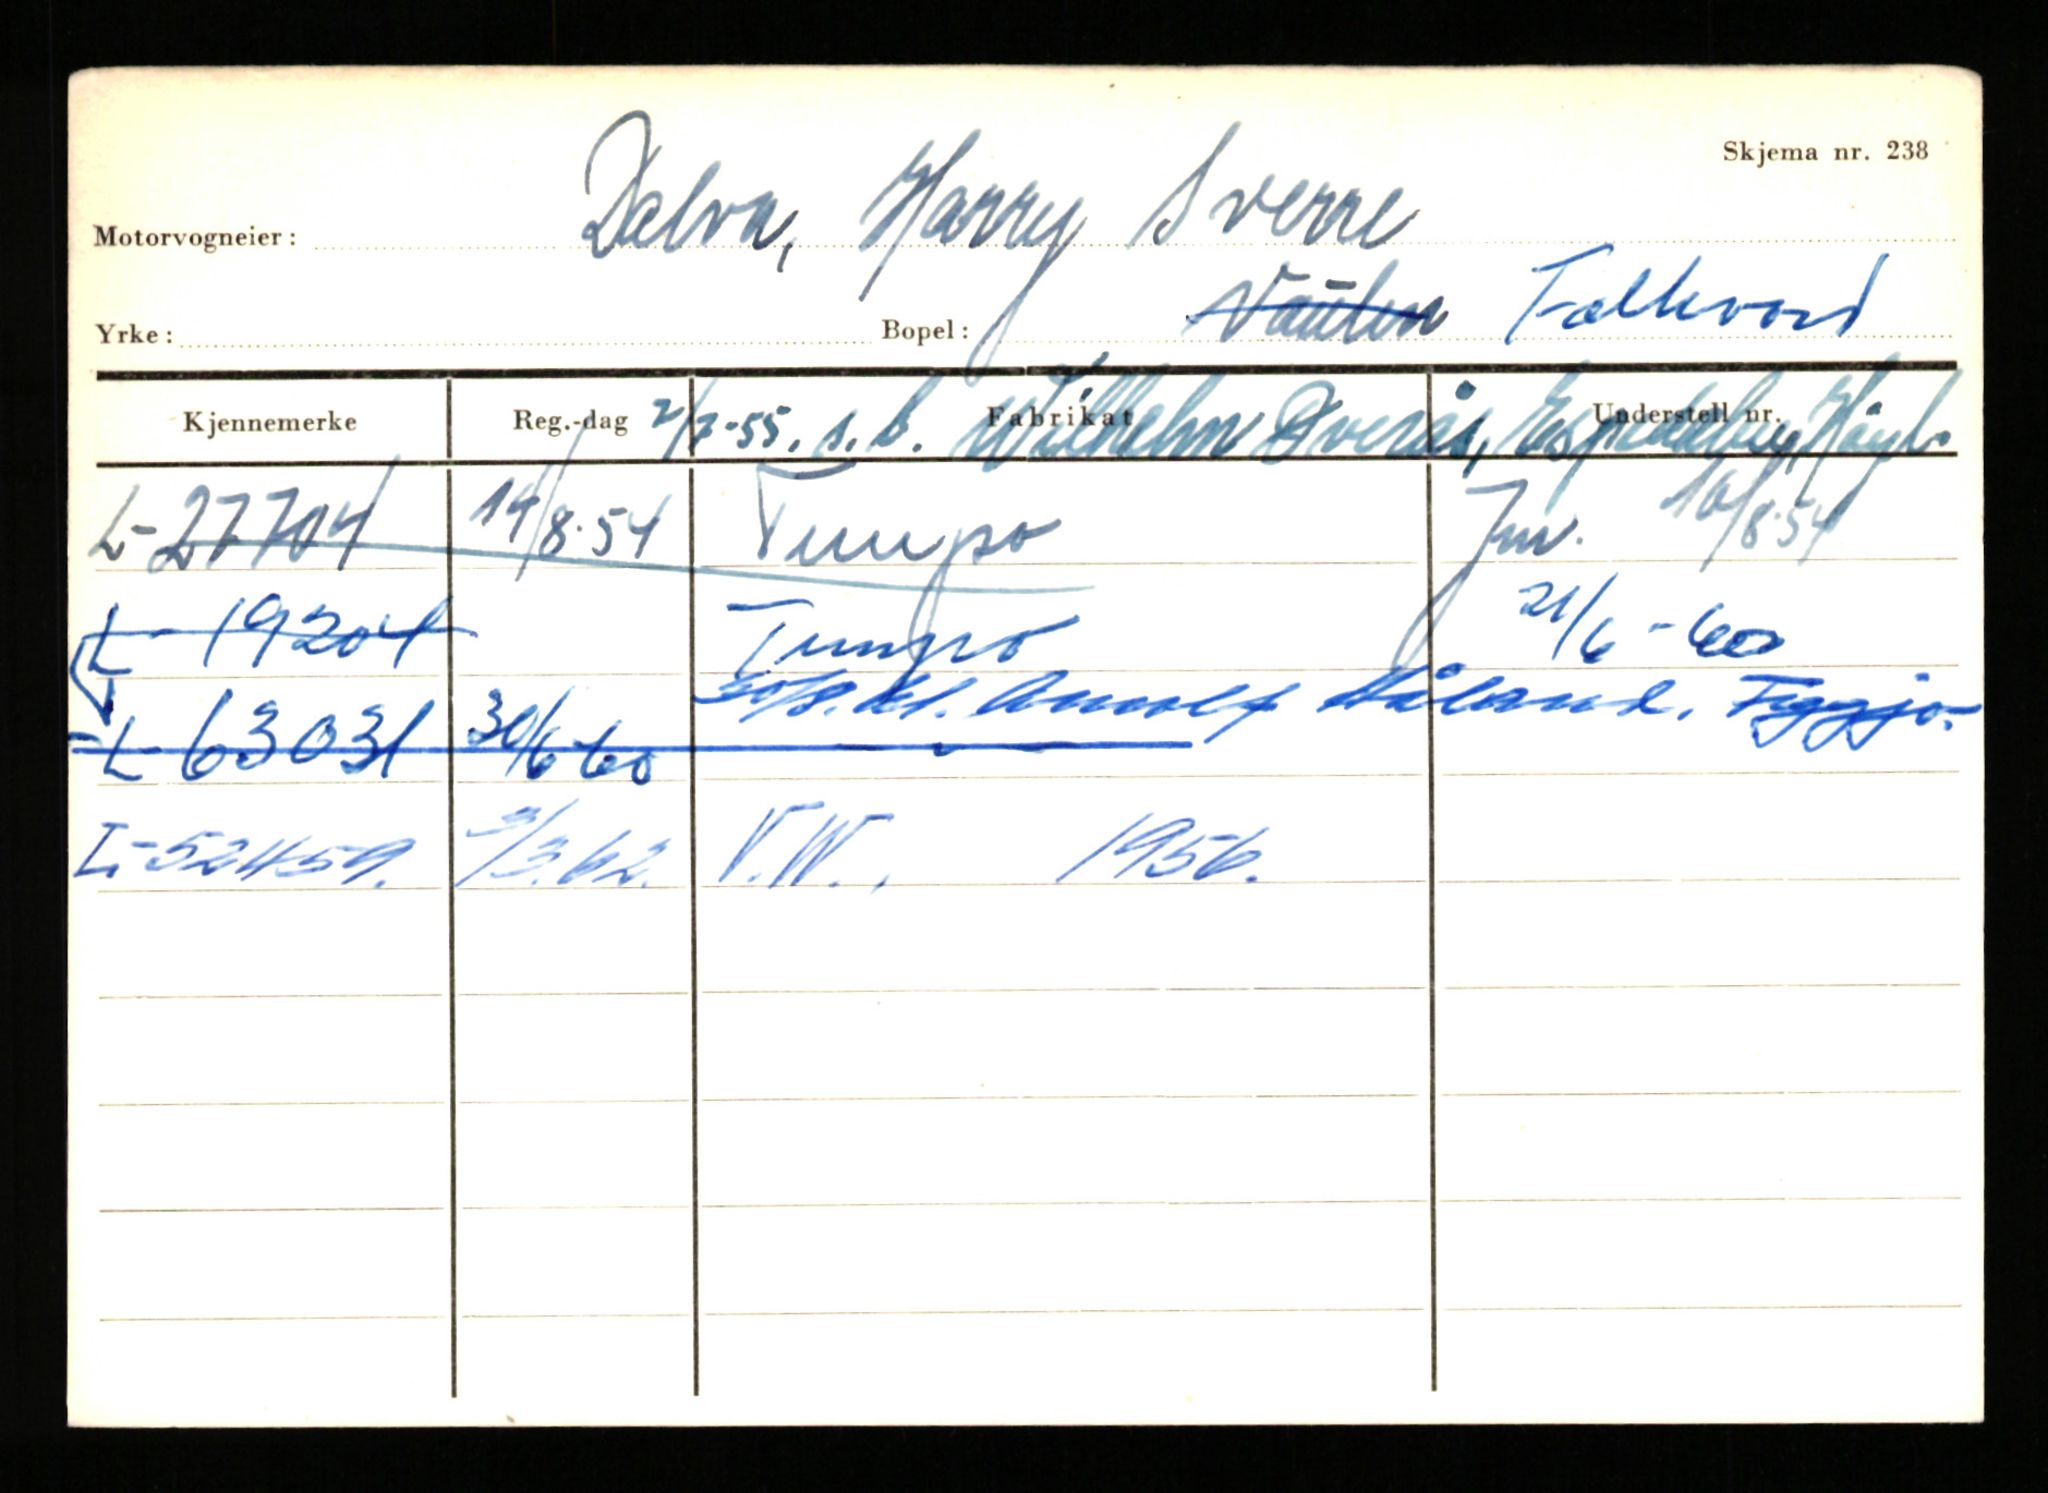 Skjema nr. 238
Motorvogneier: Dalva, Harry Sverre
Yrke: Bopel: Vaulen Folkvord
Kjennemerke Reg.-dag Fabrikat Understell nr.
2/7-55. s. b. Wilhelm Sverås, Espedalen, Høgsf.
L-27704 14/8.54 Tempo Inv. 10/8.54
L-19204 Tempo 21/6-60
L-63031 30/6-60 Arnolf Håland. Figgjo.
L-52459. 3/3.62. V.W., 1956.